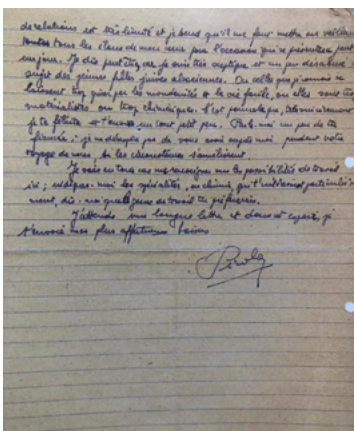 de relations est très limité et je pense qu'il me faut mettre en veilleuse
toutes tous les élans de mon cœur pour l'occasion qui se présentera peut
un jour. Je dis peut être, car je suis très sceptique et un peu désabusé
sujet des jeunes filles juives alsaciennes. Ou celles que je connais
trop par les mondanités et la vie facile, ou elles sont trop
matérialistes ou trop
je te félicite et un tout petit peu. Parle-moi un peu de ta
fiancée; je ne désespère pas de vous avoir auprès moi pendant votre
voyage de noces, si les circonstances s'améliorent.
Je vais en tous cas me renseigner sur les possibilités de travail
ici; indique-moi les spécialités, en chimie, qui t'intéressent particulière
ment, dis-moi quel genre de travail tu préférerais.
J'attends une longue lettre et dans cet espoir, je
t'envoie mes plus affectueux baisers